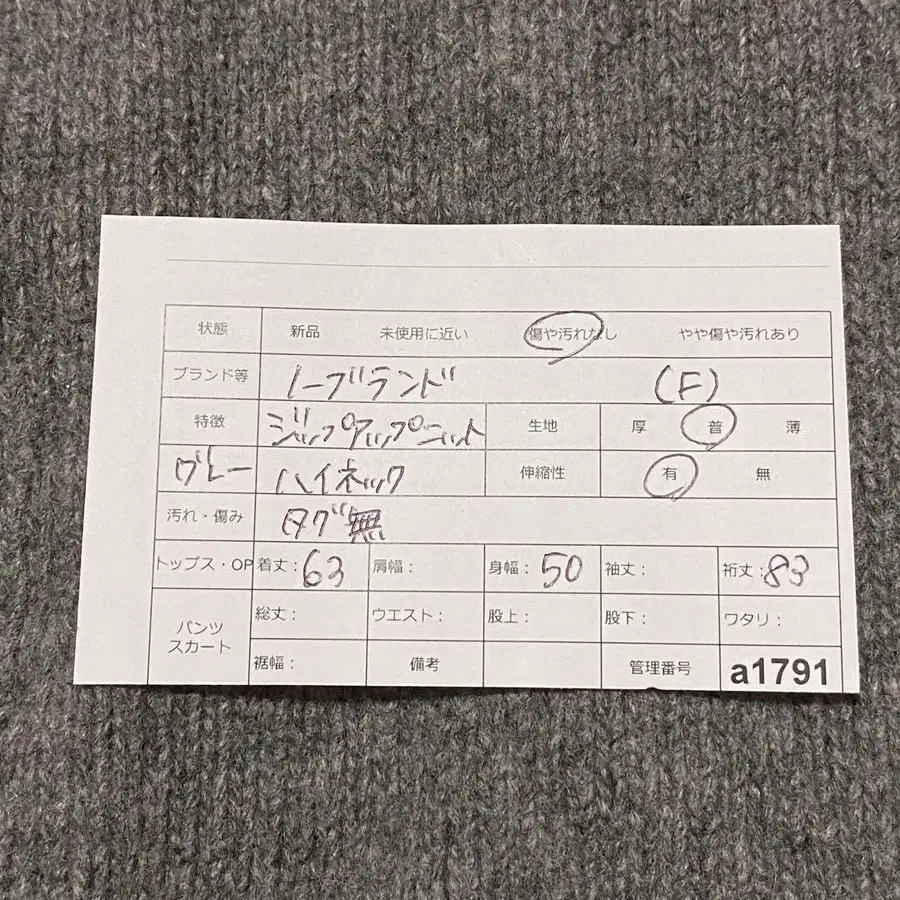 状態 新品 未使用に近い 傷や汚れなし やや傷や汚れあり
ブランド等 ノーブランド (F)
特徴 ジップアップニット 生地 厚 普 薄
グレー ハイネック 伸縮性 有 無
汚れ・傷み タグ無
トップス・OP 着丈：63 肩幅： 身幅：50 袖丈： 裄丈：83
パンツ スカート 総丈： ウエスト： 股上： 股下： ワタリ：
裾幅： 備考 管理番号 a1791